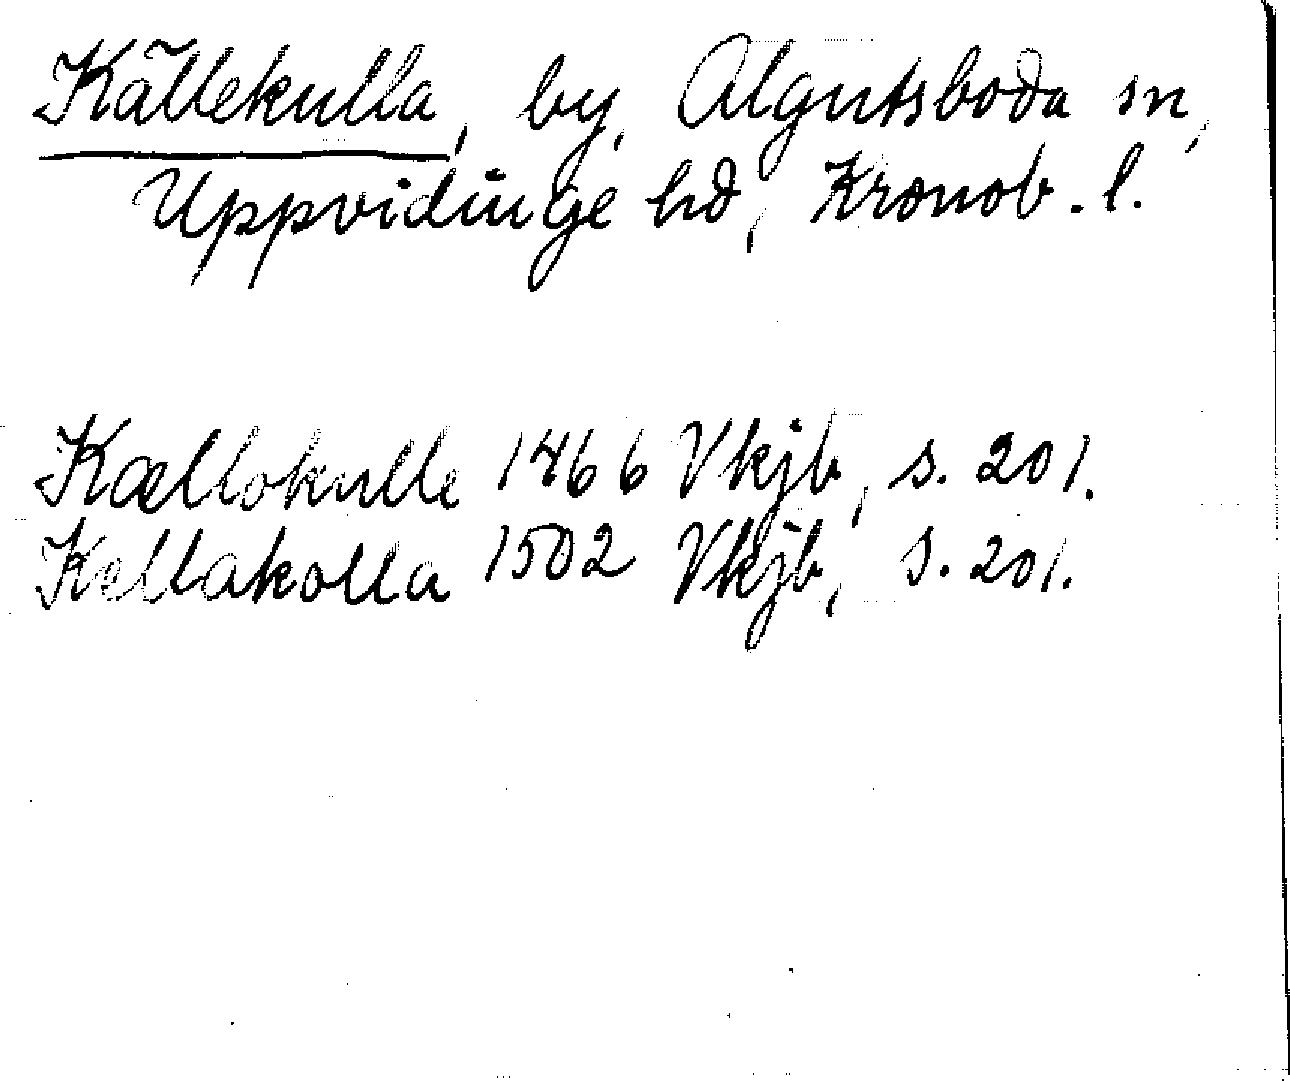 Källekulla, by, Algutsboda sn,
Uppvidinge hd, Kronob. l.
Kællokulle 1466 Vkjb, s. 201.
Kellakolla 1502 Vkjb, s. 201.